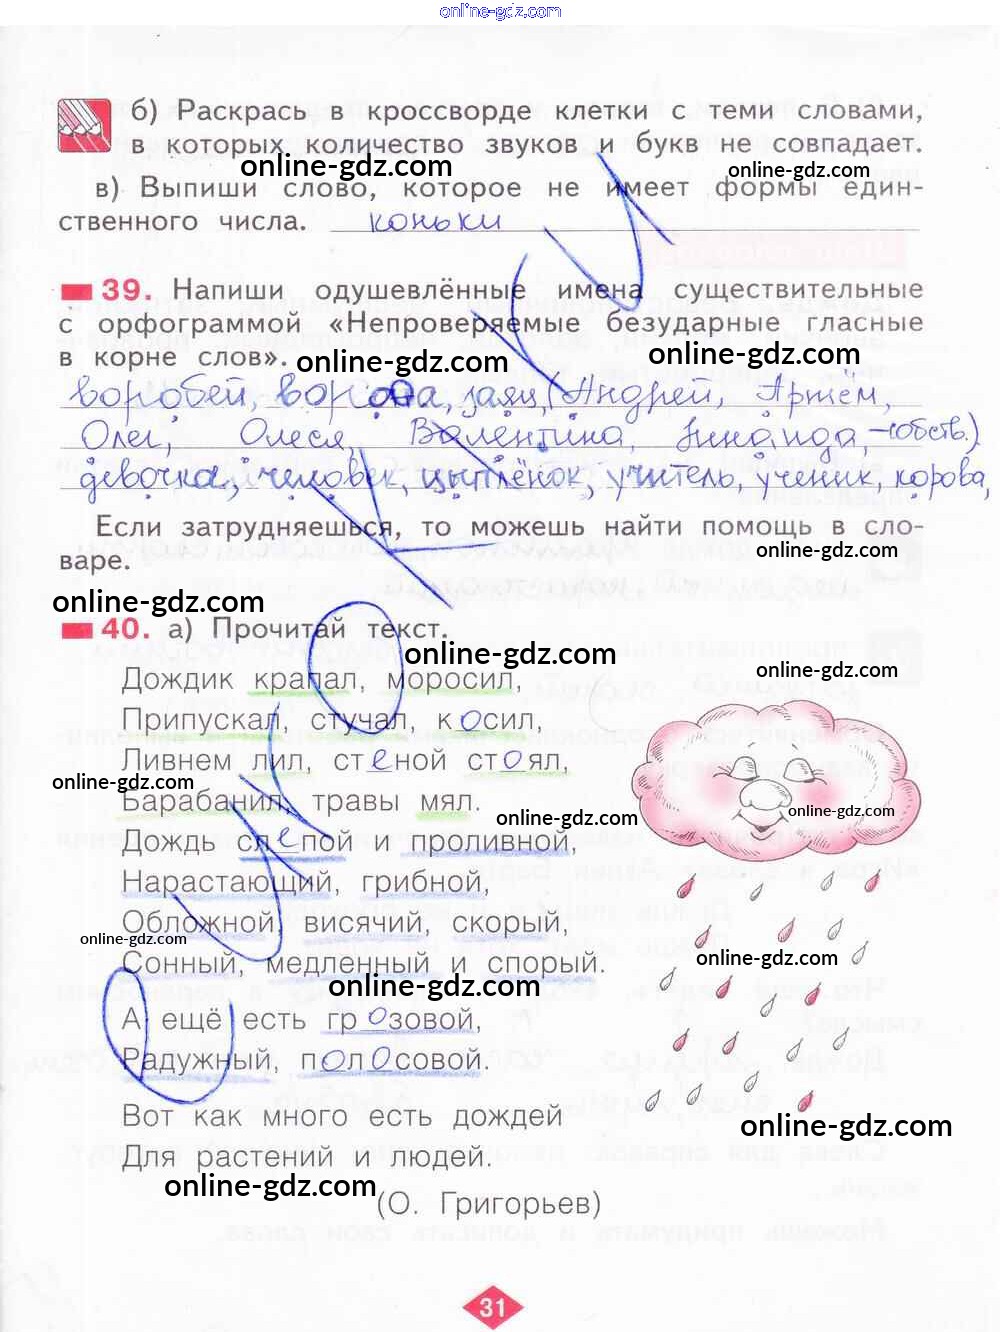 online-gdz.com
б) Раскрась в кроссворде клетки с теми словами,
в которых количество звуков и букв не совпадает.
online-gdz.com
online-gdz.com
в) Выпиши слово, которое не имеет формы един-
ственного числа. коньки
online-gdz.com
online-gdz.com
39. Напиши одушевлённые имена существительные
с орфограммой «Непроверяемые безударные гласные
в корне слов».
online-gdz.com
online-gdz.com
воробей, ворона, заяц, (Андрей, Артём,
Олег, Олеся, Валентина, Зинаида, -собств.)
девочка, человек, цыплёнок, учитель, ученик, корова,
Если затрудняешься, то можешь найти помощь в сло-
варе.
online-gdz.com
online-gdz.com
40. а) Прочитай текст.
online-gdz.com
online-gdz.com
Дождик крапал, моросил,
Припускал, стучал, косил,
Ливнем лил, стеной стоял,
online-gdz.com
Барабанил, травы мял.
online-gdz.com
online-gdz.com
Дождь слепой и проливной,
Нарастающий, грибной,
Обложной, висячий, скорый,
online-gdz.com
Сонный, медленный и спорый.
online-gdz.com
online-gdz.com
А ещё есть грозовой,
Радужный, полосовой.
Вот как много есть дождей
online-gdz.com
Для растений и людей.
online-gdz.com
(О. Григорьев)
31